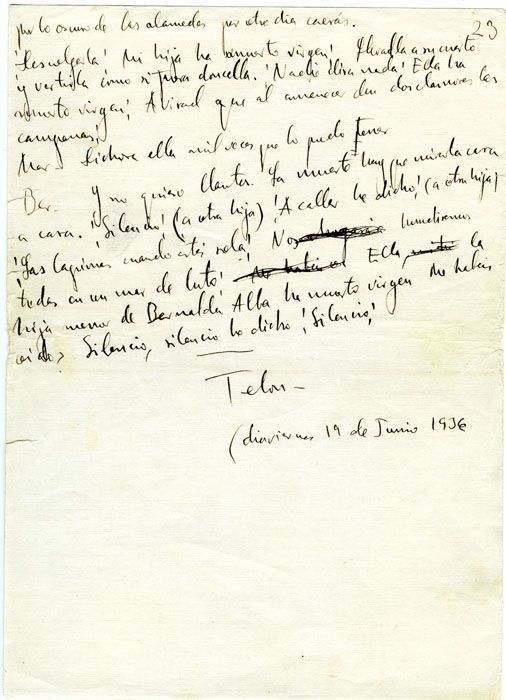 23
por lo oscuro de las alamedas pero otro dia caerás.
¡Descolgarla! ¡Mi hija ha muerto virgen! Llevadla a su cuarto
y vestirla como si fuera doncella. ¡Nadie dira nada! Ella ha
muerto virgen! Avisad que al amanecer den dos clamores las
campanas!
Mar- Dichosa ella mil veces que lo pudo tener
Ber- Y no quiero llantos. La muerte hay que mirarla cara
a cara. ¡Silencio! (a otra hija) ¡A callar he dicho! (a otra hija)
¡Las lagrimas cuando estés sola! Nos hundiremos
todas en un mar de luto! Ella, la
hija menor de Bernalda Alba ha muerto virgen Me habeis
oido? Silencio, silencio he dicho ¡Silencio!
Telon-
(dia viernes 19 de Junio 1936